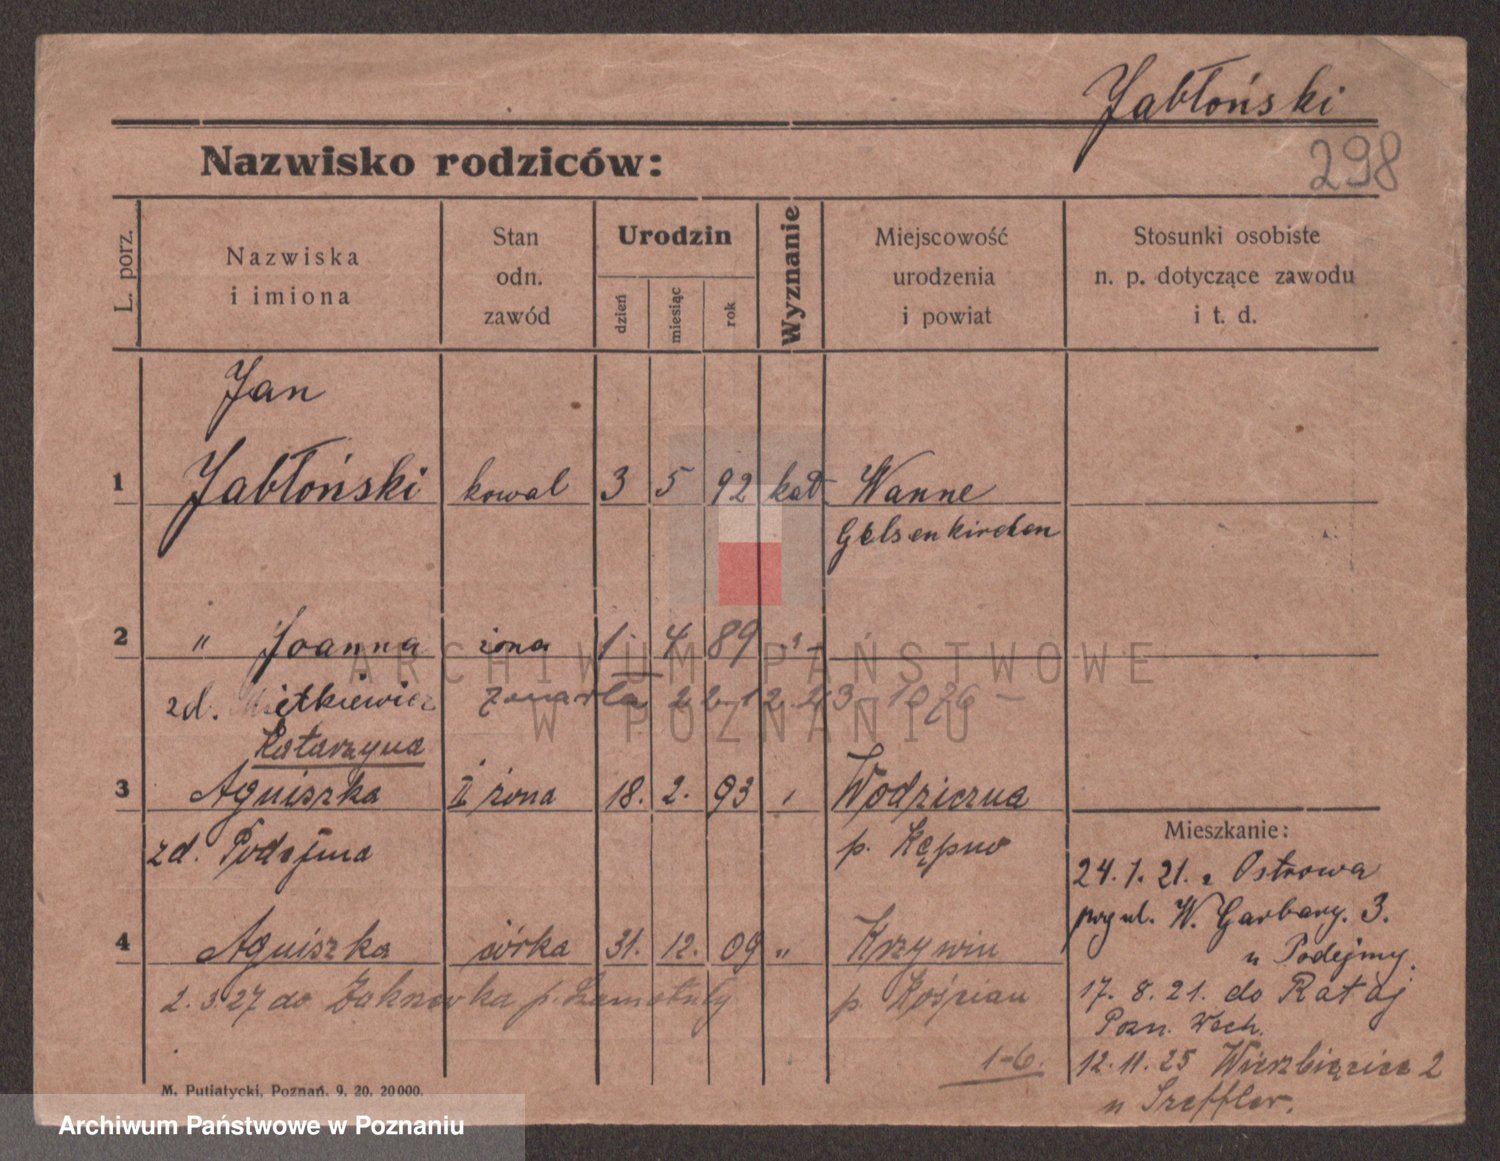 Jabłoński
298
Nazwisko rodziców:
L. porz.
Nazwiska
i imiona
Stan
odn.
zawód
Urodzin
dzień
miesiąc
rok
Wyznanie
Miejscowość
urodzenia
i powiat
Stosunki osobiste
n. p. dotyczące zawodu
i t. d.
Jan
1 Jabłoński kowal 3 5 92 kat Wanne
Gelsenkirchen
2 " Joanna żona 1. 4 89 "
zd. Miętkiewicz zmarła
Katarzyna
3 Agniszka II żona 18. 2. 93 Wodziczna
zd. Podejma p. Kępno
Mieszkanie:
24. 1. 21. z Ostrowa
przy ul. W. Garbary. 3.
u Podejmy.
4 Agniszka córka 31. 12. 09 " Krzywin
2. 3. 27 do p. Szamotuły p. Kościan
17. 8. 21. do Rataj
Pozn. Wsch.
1-6.
12. 11. 25 Wierzbięcice 2
u Szeffler.
M. Putiatycki, Poznań. 9. 20. 20000.
ARCHIWUM PAŃSTWOWE
W POZNANIU
Archiwum Państwowe w Poznaniu